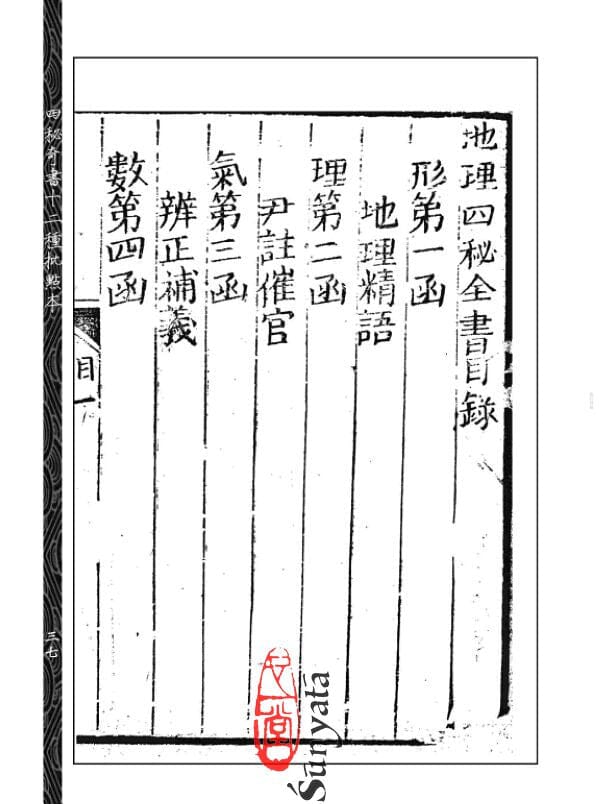 地理四秘全書目錄
形第一函
地理精語
理第二函
尹註催官
氣第三函
辨正補義
數第四函
目一
四秘奇書十二種批點本
三七
Śūnyatā